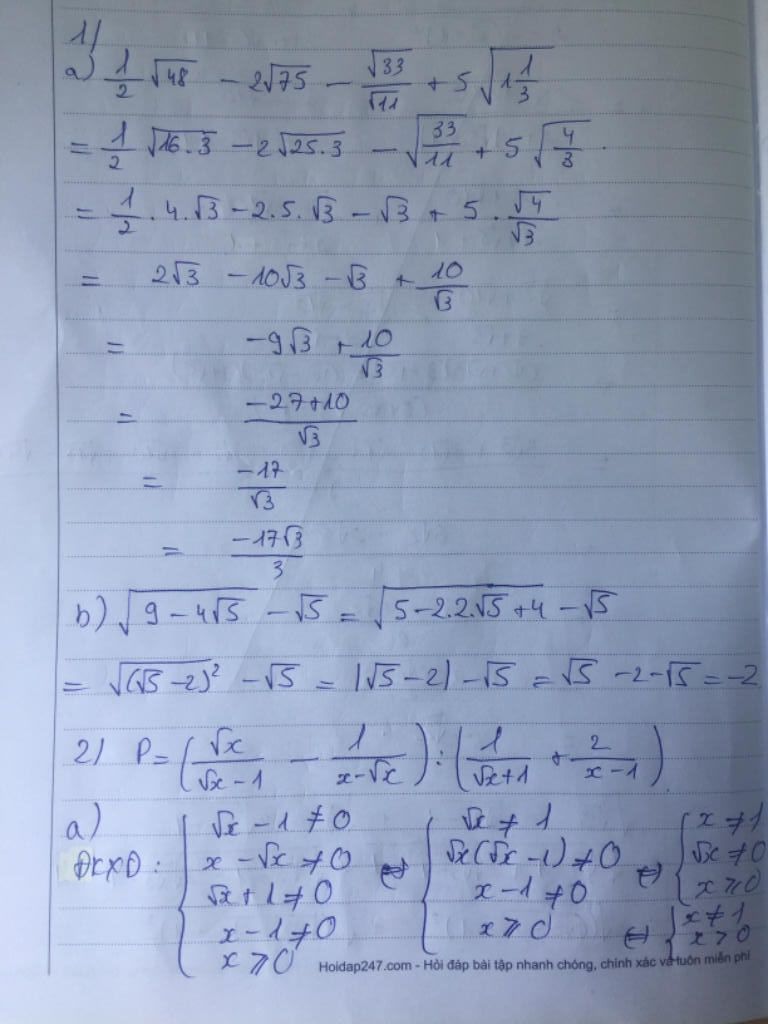 1/
a) 1/2 √48 - 2√75 - √33/√11 + 5√(1 1/3)
= 1/2 √(16.3) - 2√(25.3) - √(33/11) + 5√(4/3) .
= 1/2 . 4.√3 - 2.5.√3 - √3 + 5 . √4/√3
= 2√3 - 10√3 - √3 + 10/√3
= -9√3 + 10/√3
= (-27+10)/√3
= -17/√3
= -17√3/3
b) √(9 - 4√5) - √5 = √(5 - 2.2.√5 + 4) - √5
= √((√5 - 2)²) - √5 = |√5 - 2| - √5 = √5 - 2 - √5 = -2
2) P = (√x/(√x - 1) - 1/(x - √x)) : (1/(√x + 1) + 2/(x - 1))
a)
ĐKXĐ : { √x - 1 ≠ 0 ⇔ { √x ≠ 1 ⇔ { x ≠ 1
x - √x ≠ 0 √x(√x - 1) ≠ 0 √x ≠ 0
√x + 1 ≠ 0 x - 1 ≠ 0 x ⩾ 0
x - 1 ≠ 0 x ⩾ 0 ⇔ { x ≠ 1
x ⩾ 0 x > 0
Hoidap247.com - Hỏi đáp bài tập nhanh chóng, chính xác và luôn miễn phí